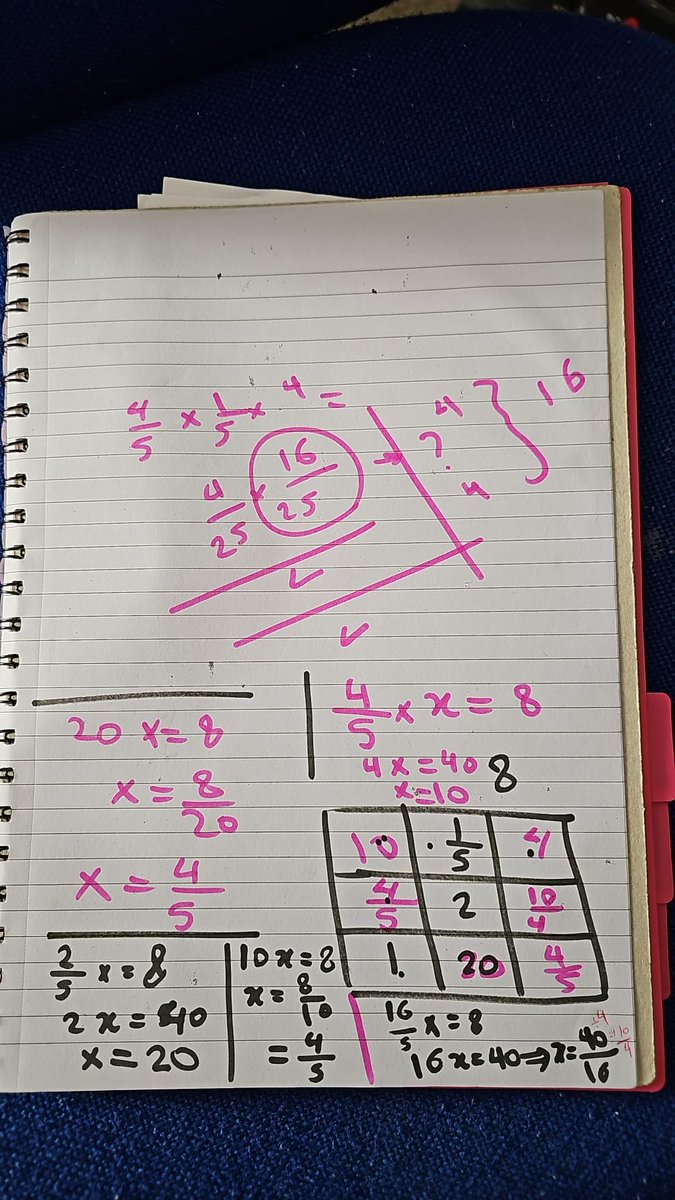 4/5 × 1/5 × 4 =
4/25 × 16/25 → ? 4 4 } 16
20 x = 8
x = 8/20
x = 4/5
4/5 × x = 8
4x = 40 8
x = 10
10 1/5 4
4/5 2 10/4
1 20 4/5
2/5 x = 8
2x = 40
x = 20
10x = 8
x = 8/10
= 4/5
16/5 x = 8
16x = 40 ⇒ x = 40/16 ÷4 10/4